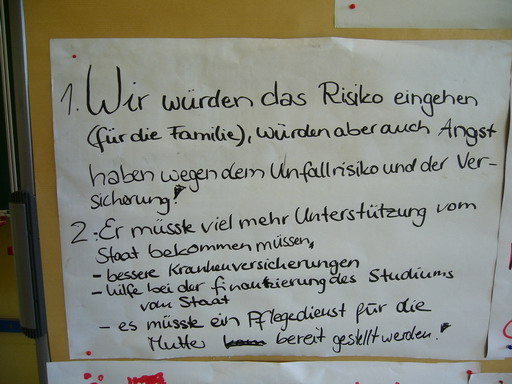 1. Wir würden das Risiko eingehen
(für die Familie), würden aber auch Angst
haben wegen dem Unfallrisiko und der Ver-
sicherung!
2. Er müsste viel mehr Unterstützung vom
Staat bekommen müssen,
- bessere Krankenversicherungen
- hilfe bei der finantzierung des Studiums
vom Staat
- es müsste ein Pflegedienst für die
Mutter bereit gestellt werden!